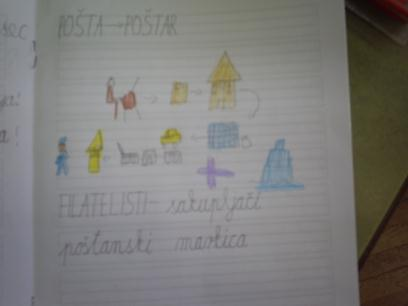 POŠTA → POŠTAR
FILATELISTI - sakupljači
poštanski markica